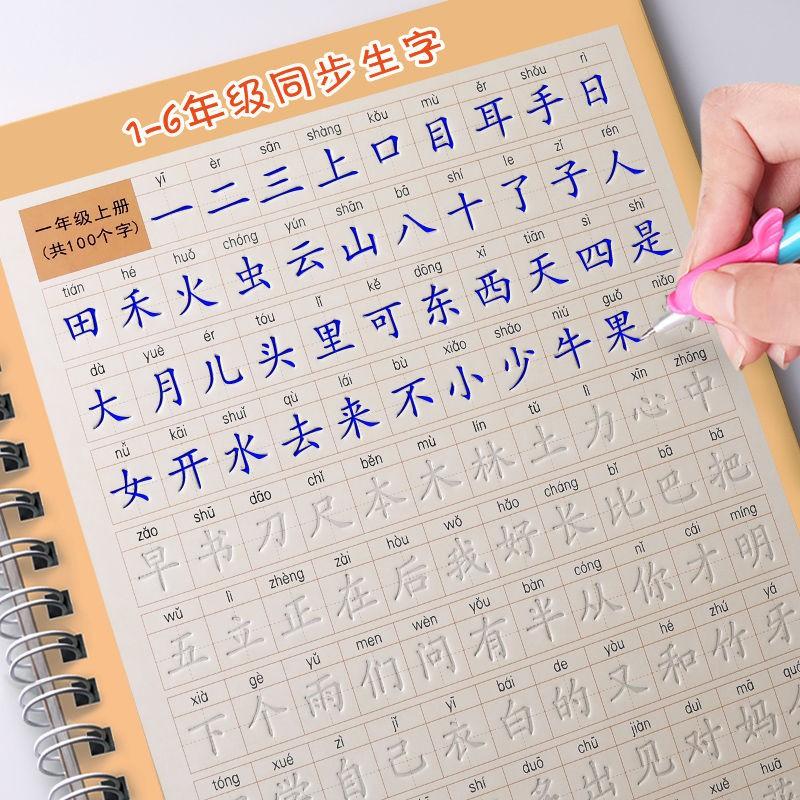 1-6年级同步生字
一年级上册
(共100个字)
yī èr sān shàng kǒu mù ěr shǒu rì
一 二 三 上 口 目 耳 手 日
tián hé huǒ chóng yún shān bā shí le zǐ rén
田 禾 火 虫 云 山 八 十 了 子 人
dà yuè ér tóu lǐ kě dōng xī tiān sì shì
大 月 儿 头 里 可 东 西 天 四 是
nǚ kāi shuǐ qù lái bù xiǎo shǎo niú guǒ niǎo
女 开 水 去 来 不 小 少 牛 果
zǎo shū dāo chǐ běn mù lín tǔ lì xīn zhōng
早 书 刀 尺 本 木 林 土 力 心 中
wǔ lì zhèng zài hòu wǒ hǎo cháng bǐ bā bǎ
五 立 正 在 后 我 好 长 比 巴 把
xià gè yǔ men wèn yǒu bàn cóng nǐ cái míng
下 个 雨 们 问 有 半 从 你 才 明
tóng xué zì jǐ yī bái de yòu hé zhú yá
学 自 己 衣 白 的 又 和 竹 牙
shí duō chū jiàn duì mā
多 出 见 对 妈
xuě huā